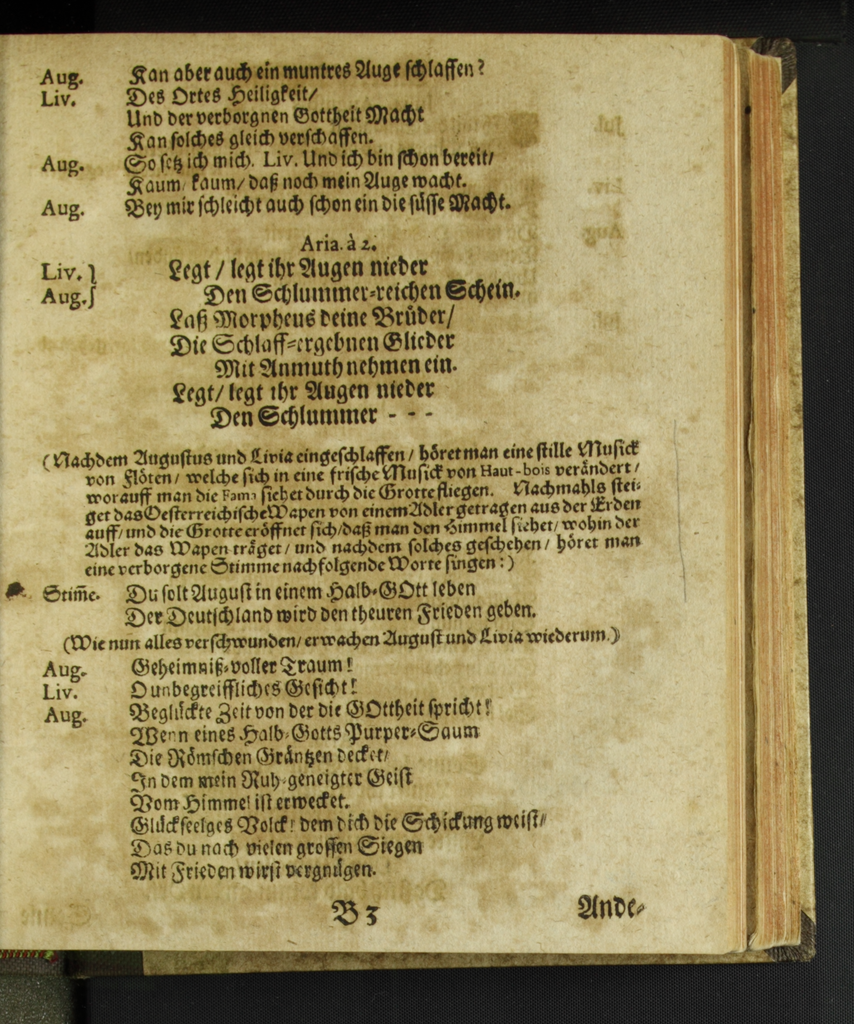 Aug. Kan aber auch ein muntres Auge schlaffen?
Liv. Des Ortes Heiligkeit/
Und der verborgnen Gottheit Macht
Kan solches gleich verschaffen.
Aug. So setz ich mich. Liv. Und ich bin schon bereit/
Kaum/ kaum/ daß noch mein Auge wacht.
Aug. Bey mir schleicht auch schon ein die süsse Macht.
Aria. à 2.
Liv. } Legt / legt ihr Augen nieder
Aug. } Den Schlummer-reichen Schein.
Laß Morpheus deine Brüder/
Die Schlaff-ergebnen Glieder
Mit Anmuth nehmen ein.
Legt/ legt ihr Augen nieder
Den Schlummer - - -
(Nachdem Augustus und Livia eingeschlaffen / höret man eine stille Musick
von Flöten/ welche sich in eine frische Musick von Haut-bois verändert/
worauff man die Fama siehet durch die Grotte fliegen. Nachmahls stei-
get das Oesterreichische Wapen von einem Adler getragen aus der Erden
auff/ und die Grotte eröffnet sich/ daß man den Himmel siehet/ wohin der
Adler das Wapen träget / und nachdem solches geschehen / höret man
eine verborgene Stimme nachfolgende Worte singen:)
Stim̄e. Du solt August in einem Halb-GOtt leben
Der Deutschland wird den theuren Frieden geben.
(Wie nun alles verschwunden/ erwachen August und Livia wiederum.)
Aug. Geheimniß-voller Traum!
Liv. O unbegreiffliches Gesicht!
Aug. Beglückte Zeit von der die GOttheit spricht!
Wenn eines Halb-Gotts Purper-Saum
Die Römschen Gräntzen decket/
In dem mein Ruh-geneigter Geist
Vom Himmel ist erwecket.
Glückseelges Volck! dem dich die Schickung weist/
Das du nach vielen grossen Siegen
Mit Frieden wirst vergnügen.
B 3 Ande-